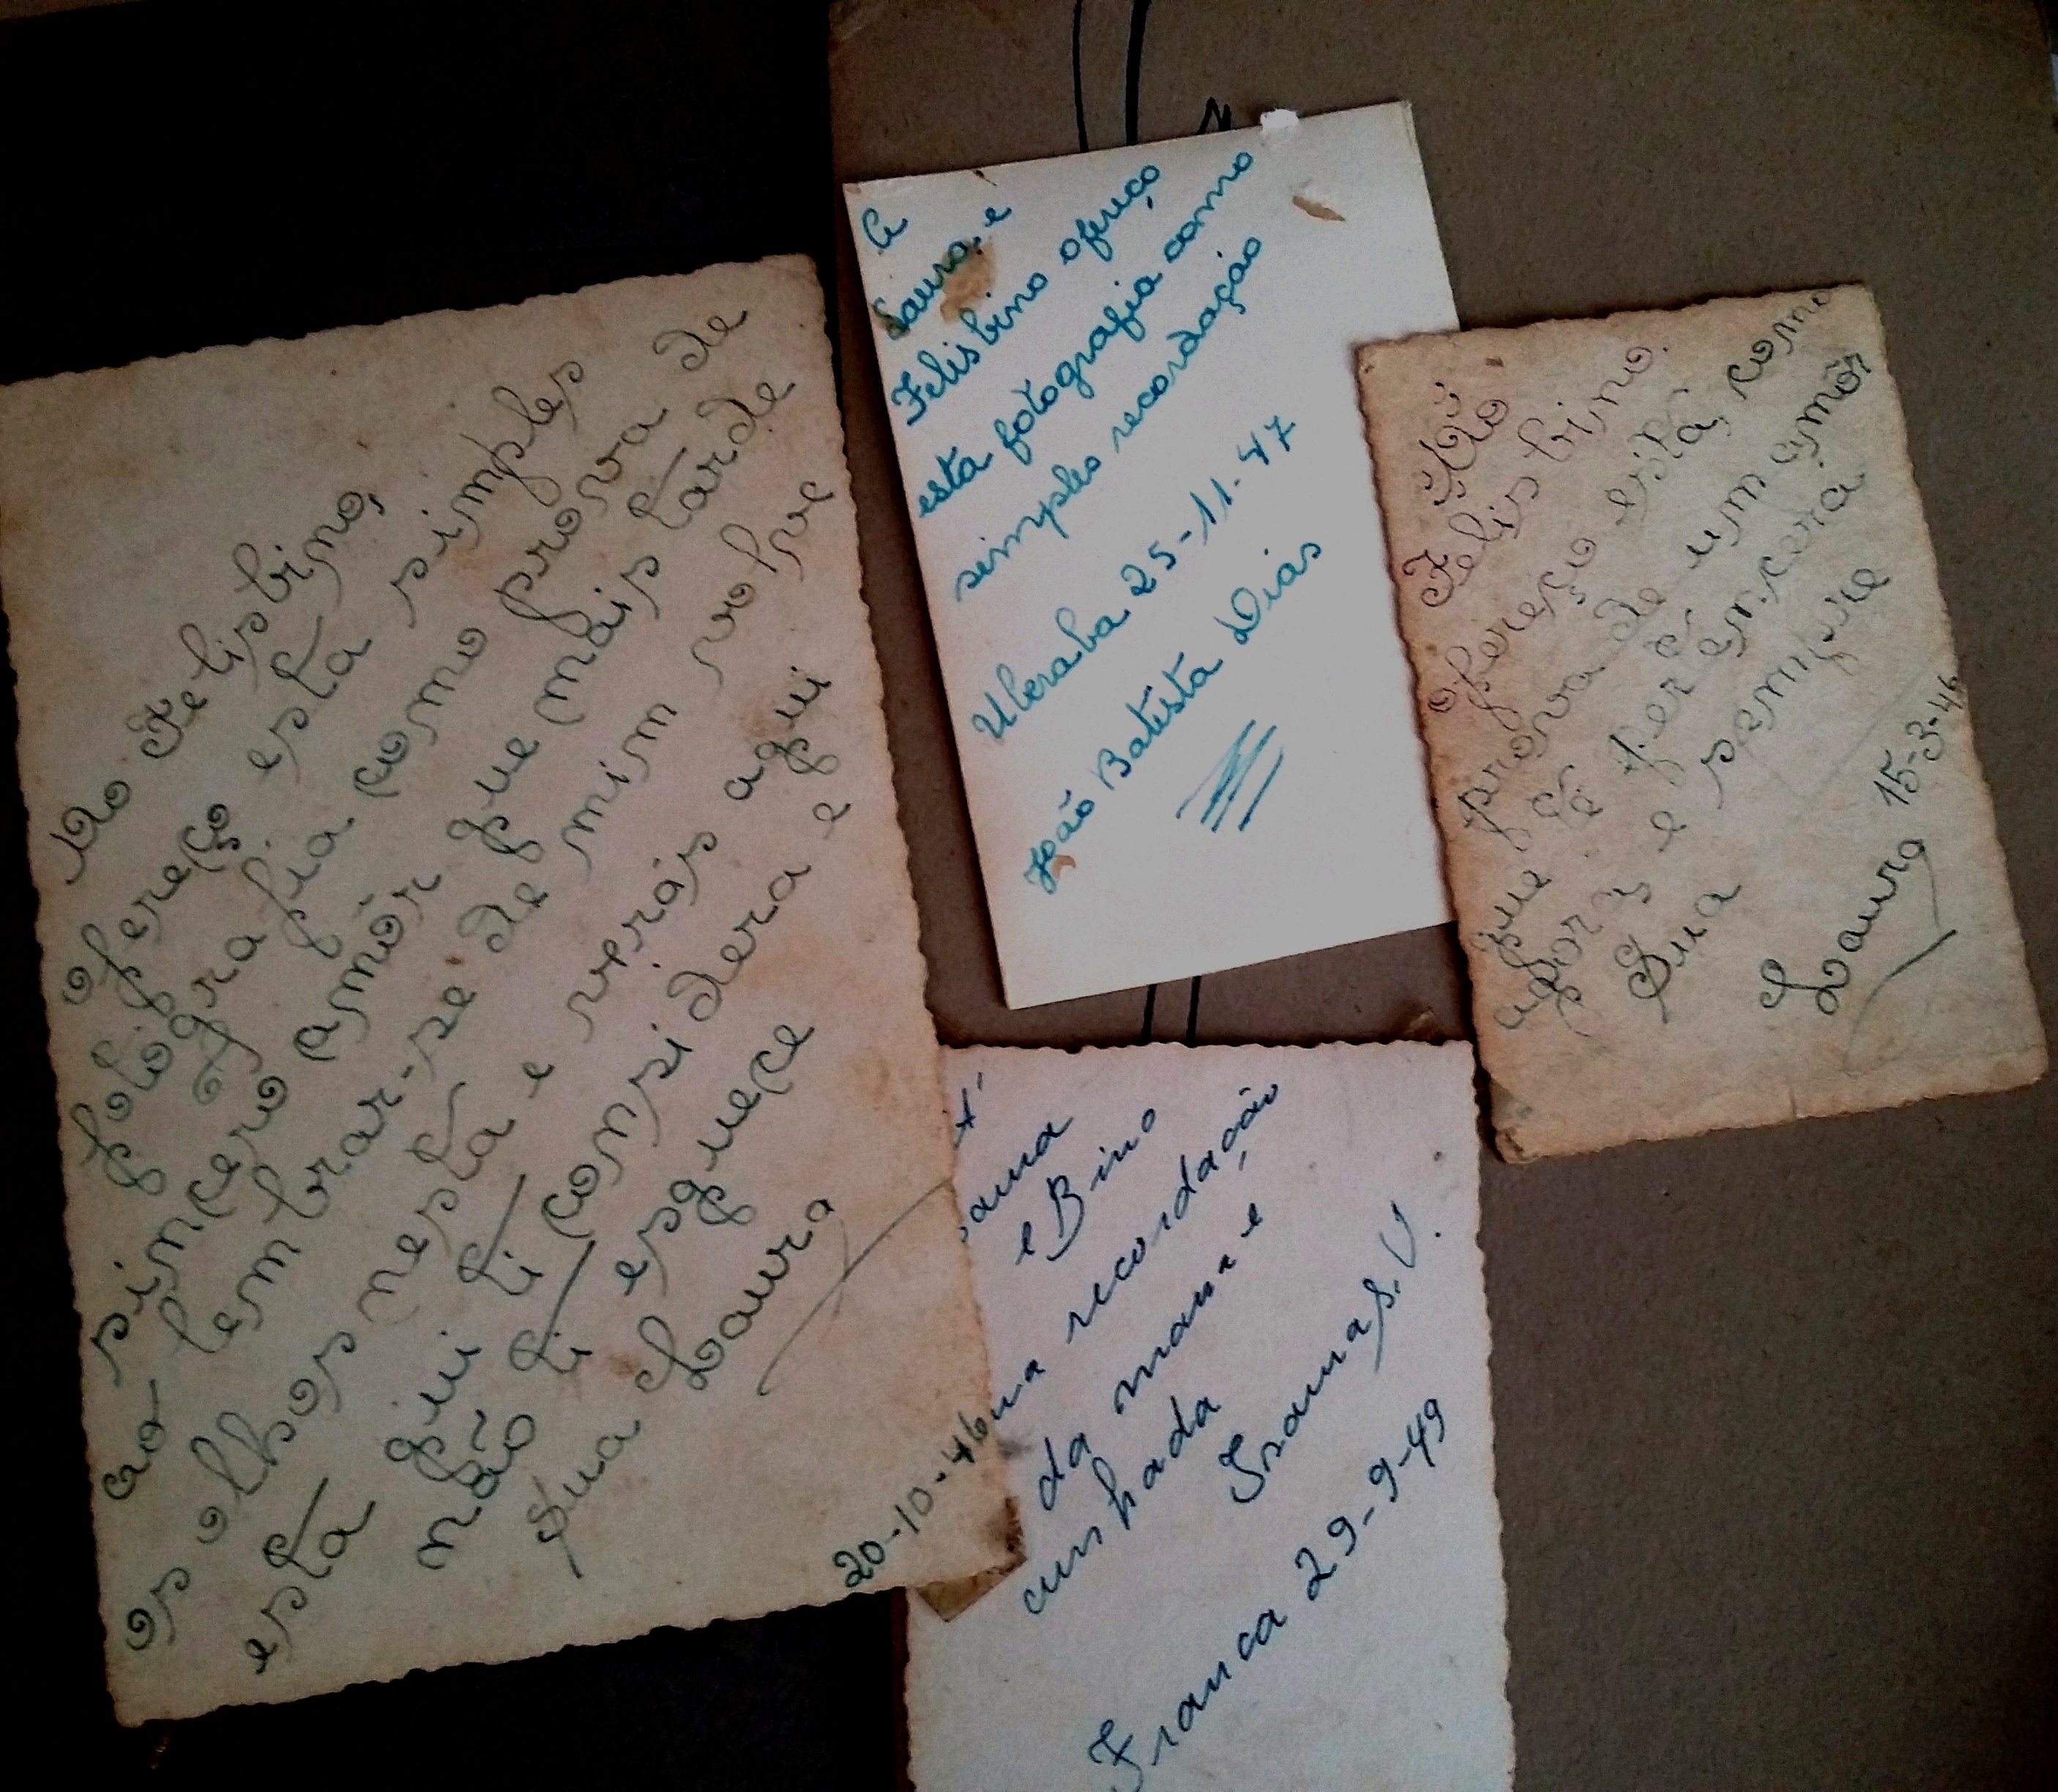 Ao Felisbino,
ofereço esta simples
fotografia como prova de
sincero amôr que mais tarde
ao lembrar-se de mim volve
os olhos nesta e verás aqui
esta qui ti considera e
não ti esquece
sua Laura
20-10-46
A
Laura e
Felisbino ofereço
esta fotografia como
simples recordação
Uberaba 25-11-47
João Batista Dias
Ao
Felisbino.
Ofereço esta, como
prova de um amôr
que té
agora e sempre
Sua
Laura 15-3-46
e Bino
recordação
da mana e
cunhada
Franca 29-9-49